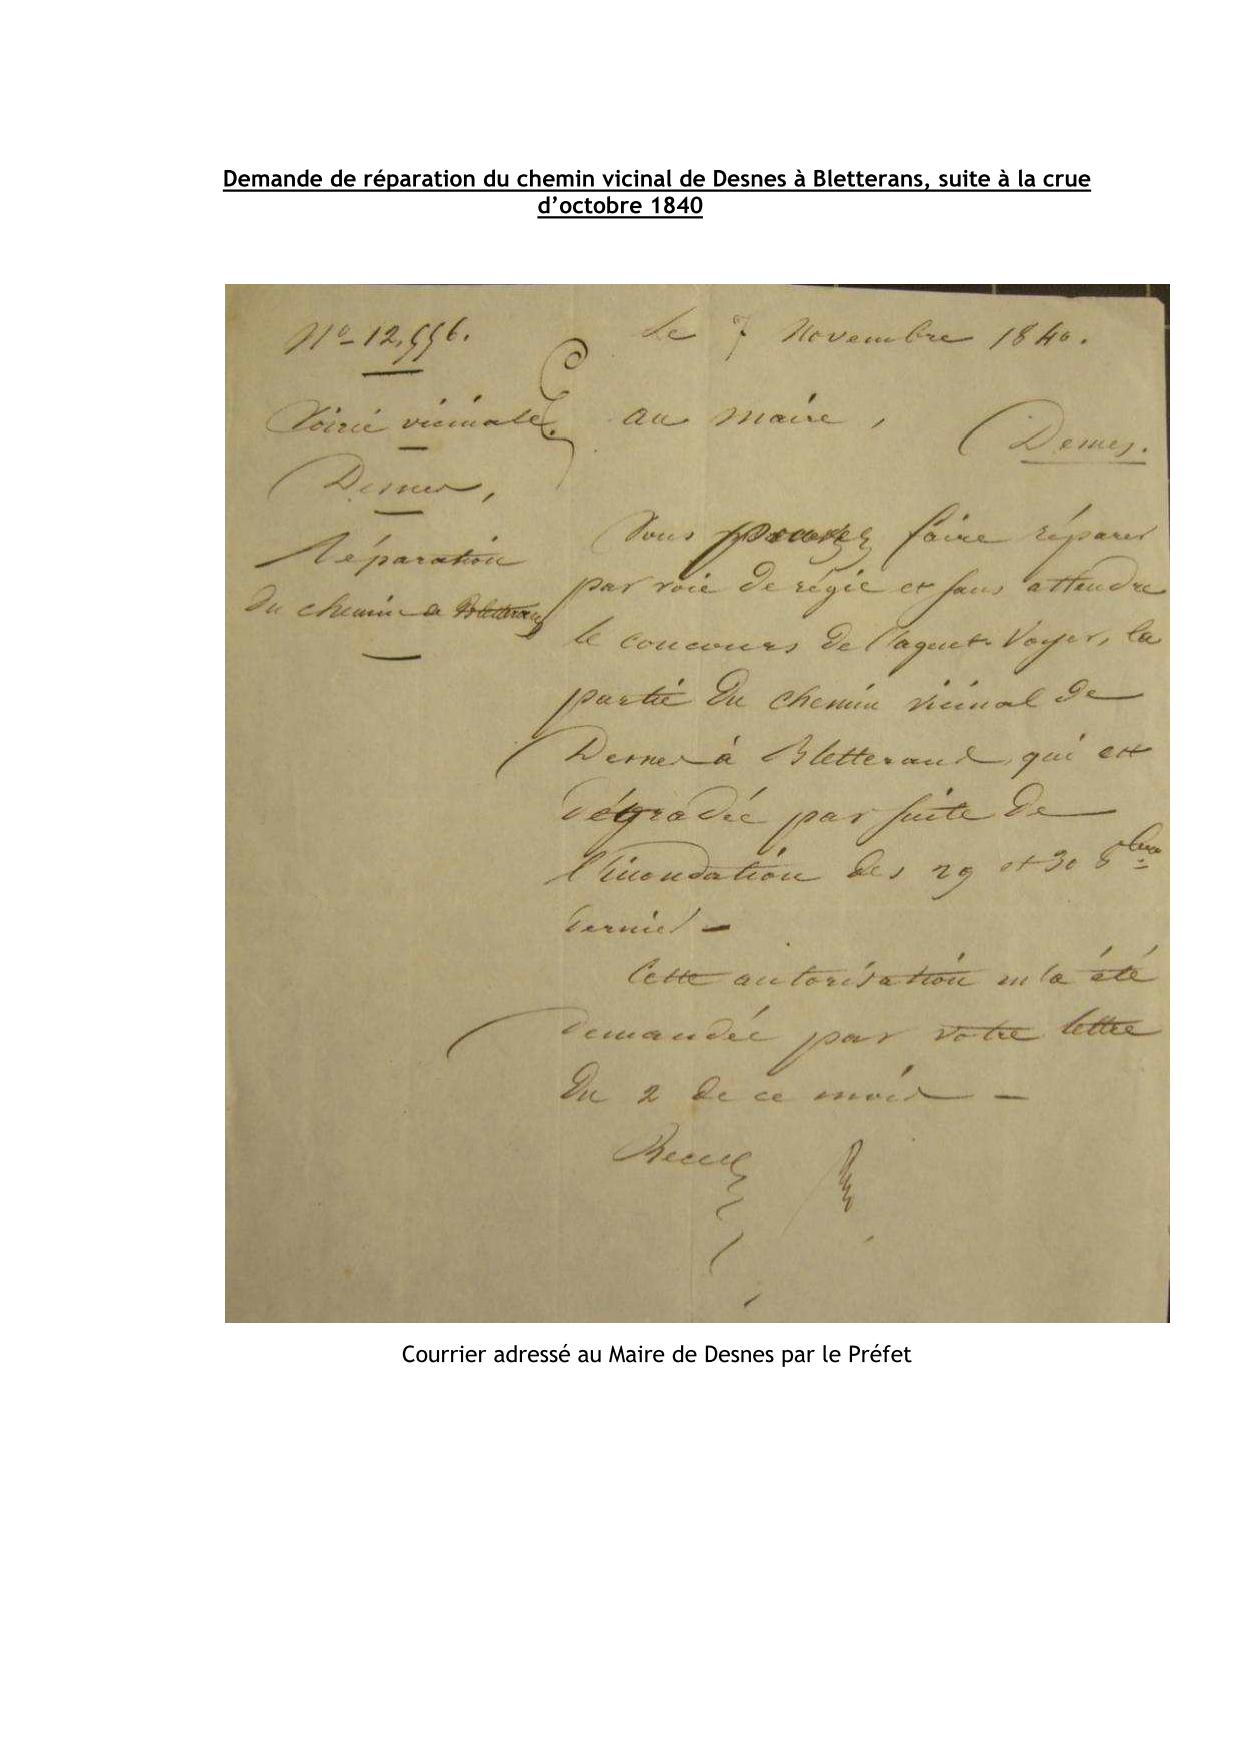 Demande de réparation du chemin vicinal de Desnes à Bletterans, suite à la crue
d’octobre 1840
Le 7 Novembre 1840.
Voirie vicinale.
Desnes,
Réparation
du chemin a Bletterans
au Maire,
Desnes.
Vous pouvez faire réparer
par voie de régie et sans attendre
le concours de l'agent-Voyer, la
partie du chemin vicinal de
Desnes à Bletterans qui est
dégradée par suite de
l'inondation des 29 et 30 8bre
dernier -
Cette autorisation m'a été
demandée par votre lettre
du 2 de ce mois -
Recevez
Courrier adressé au Maire de Desnes par le Préfet